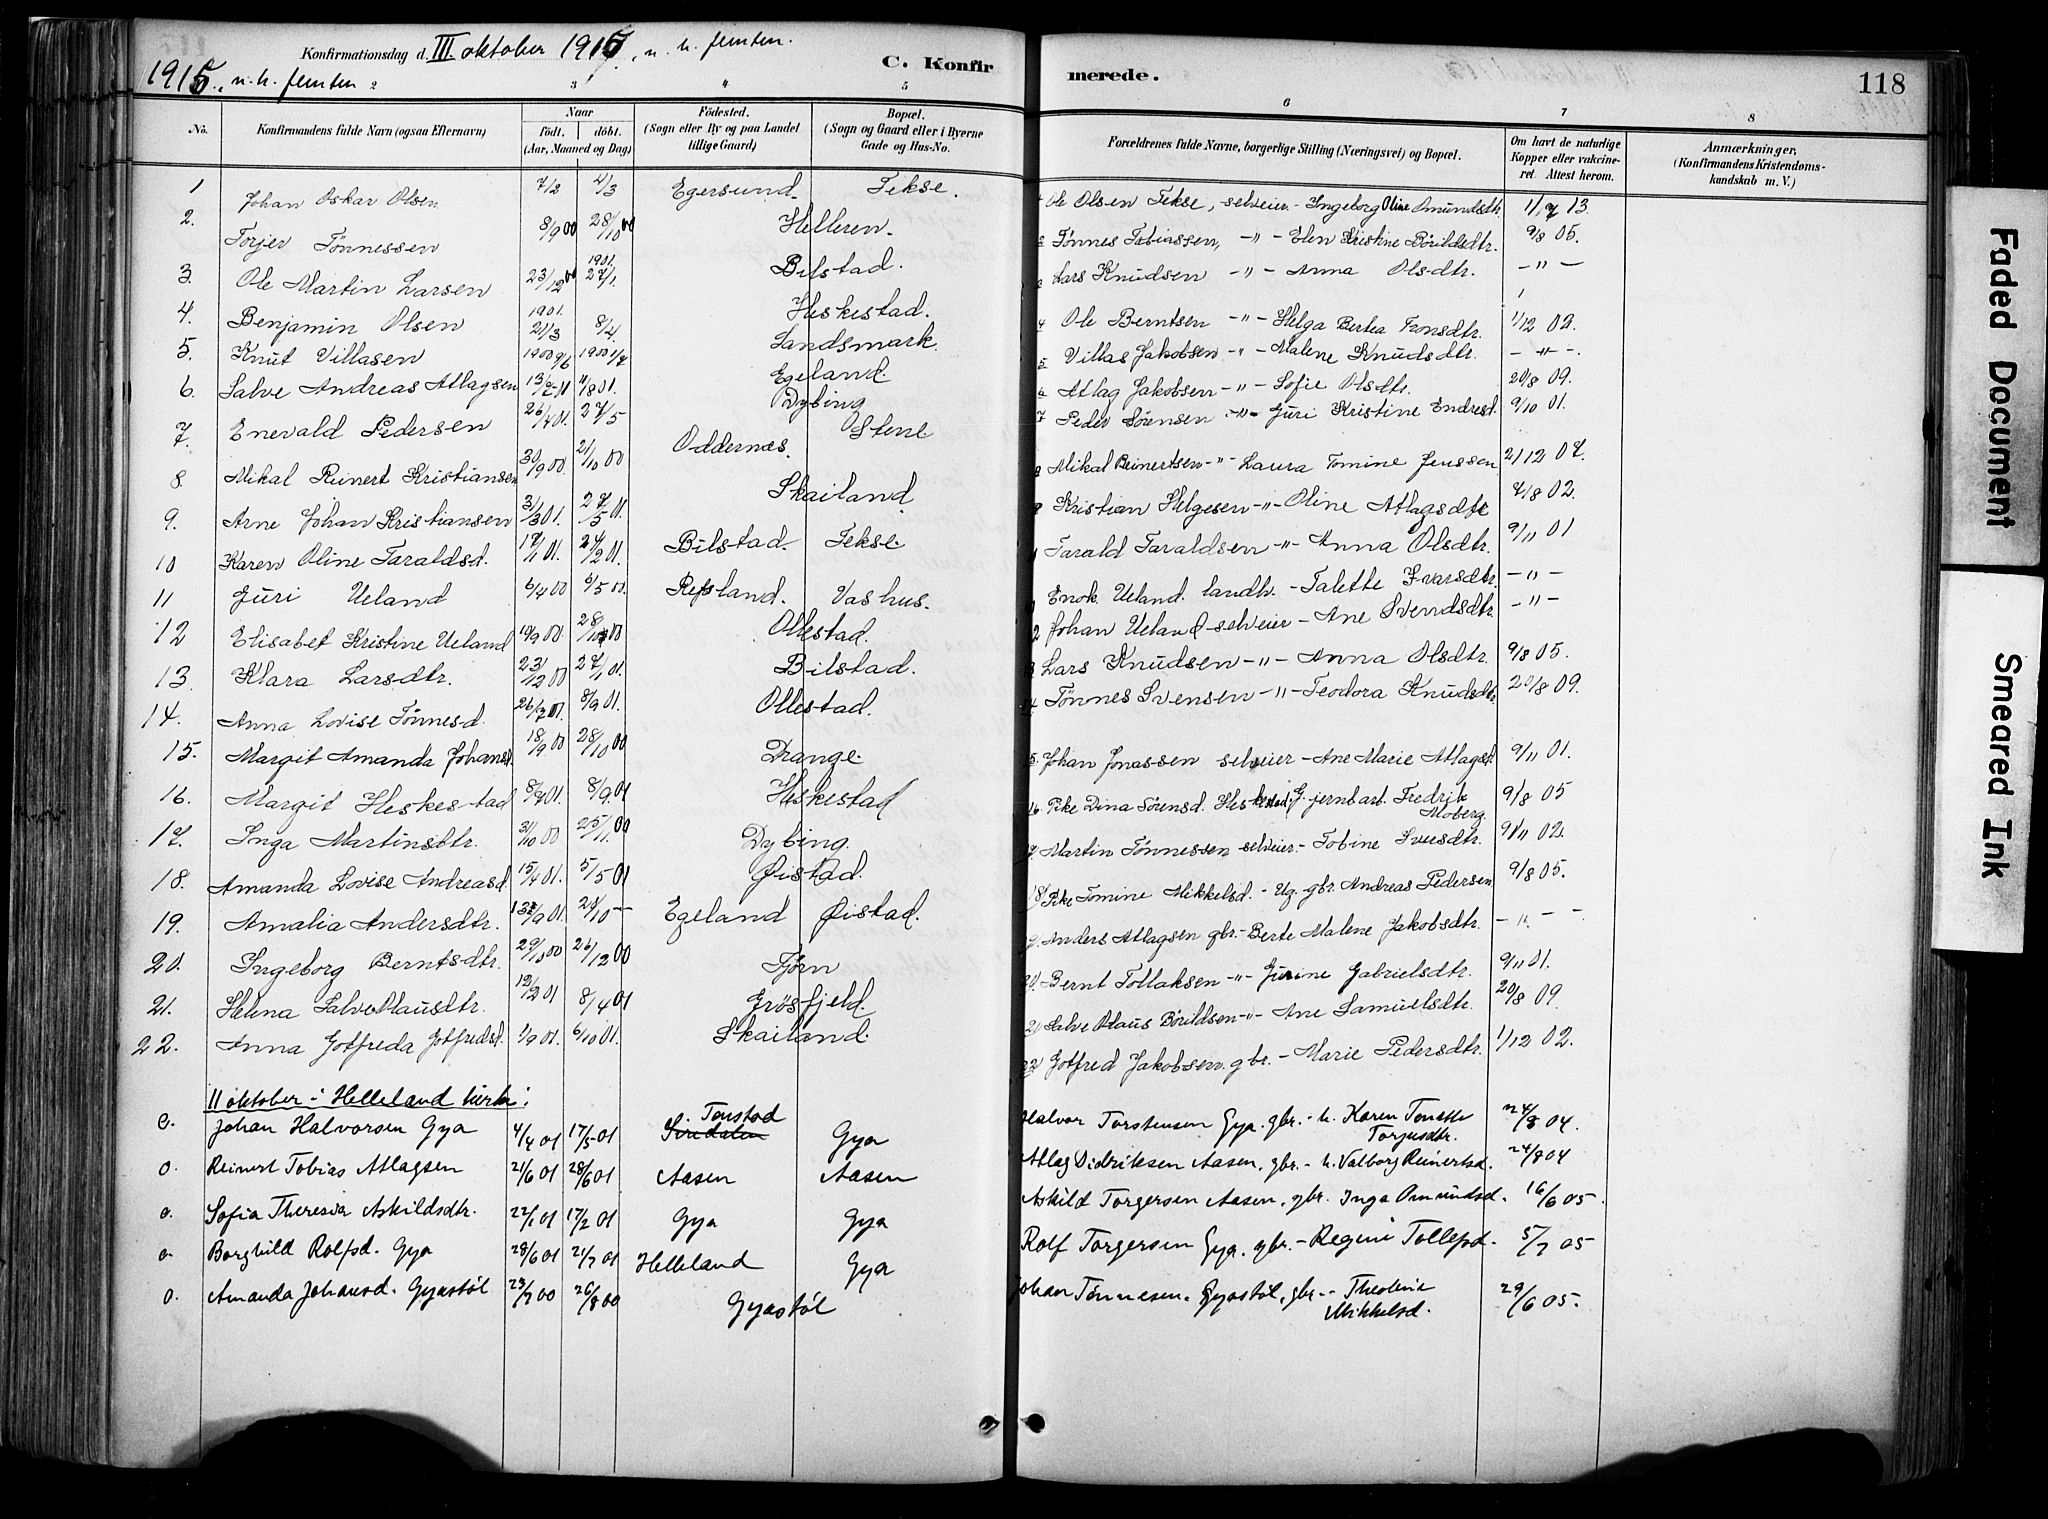 Konfirmationsdag d. III. oktober 1915, n. h. femten.
1915, n. h. femten
C. Konfirmerede.
118
2 3 4 5 6 7 8
No. Konfirmandens fulde Navn (ogsaa Efternavn) Naar født. døbt. (Aar, Maaned og Dag) Fødested. (Sogn eller By og paa Landet tillige Gaard) Bopæl. (Sogn og Gaard eller i Byerne Gade og Hus-No. Forældrenes fulde Navne, borgerlige Stilling (Næringsvei) og Bopæl. Om havt de naturlige Kopper eller vaccineret. Attest herom. Anmærkninger, (Konfirmandens Kristendomskundskab m. V.)
1 Johan Oskar Olsen 7/2 4/3 Egersund. Tekse. Ole Olsen Tekse, selveier - Ingeborg Oline Omundsdtr. 11/7 13.
2. Torjer Tönnessen 8/9 00 28/10 00 Helleren. Tönnes Tobiassen, -"- Elen Kristine Börildsdtr. 9/8 05.
3. Ole Martin Larsen 23/12 00 1901. 27/1. Bilstad. Lars Knudsen -"- Anna Olsdtr. -"-
4. Benjamin Olsen 1901. 21/3 8/4 Heskestad. 4 Ole Berntsen -"- Helga Bertea Tronsdtr. 1/12 02.
5. Knut Villasen 1900 9/6 1900 1/7 Landsmark. 5 Villas Jakobsen -"- Malene Knudsdtr. -"-.
6. Salve Andreas Atlagsen 13/7 01 11/8 01. Egeland. 6 Atlag Jakobsen -"- Sofie Olsdtr. 20/8 09.
7. Enevald Pedersen 26/4 01. 27/5 Dybing 7 Peder Sörensen -"- Guri Kristine Endresd. 9/10 01.
8. Mikal Reinert Kristiansen 30/9 00 21/10 00 Oddernæs. Stene 8 Mikal Reinertsen -"- Laura Tomine Jenssen 21/12 04.
9. Arne Johan Kristiansen 31/3 01. 27/5 01. Skailand Kristian Helgesen -"- Oline Atlagsdtr 4/8 02.
10 Karen Oline Taraldsd. 17/1 01. 24/2 01. Bilstad. Tekse. Tarald Taraldsen -"- Anna Olsdtr. 9/11 01
11 Guri Ueland 6/4 00 6/5 00. Refsland. Vashus. Enok Ueland. landh. - Talette Ivarsdtr. -"-
12 Elisabet Kristine Ueland 19/9 00. 28/10 00 Ollestad. 2 Johan Ueland selveier - Ane Svendsdtr. -"-
13. Klara Larsdtr. 23/12 00 27/1 01. Bilstad. Lars Knudsen -"- Anna Olsdtr. 9/8 05.
14. Anna Lovise Tönnesd. 26/7 01. 8/9 01. Ollestad. 14 Tönnes Svensen -"- Teodora Knudsdtr 20/8 09.
15. Margit Amanda Johansd. 18/9 00 28/10 00 Drange. 5. Johan Jonassen selveier - Ane Marie Atlagsd. 9/11 01.
16. Margit Heskestad 8/7 01. 8/9 01 Heskestad 16. Pike Dina Sörensd. Heskestad, G. jernbarb. Fredrik Moberg. 9/8 05
17. Inga Martinsdtr. 31/10 00 25/11 00 Dybing. 7. Martin Tönnessen selveier. - Tobine Svendsdtr. 9/11 02.
18. Amanda Lovise Andreasd. 15/4 01. 5/5 01 Øistad. 18. Pike Tomine Mikkelsd. - Ug. gbr. Andreas Pedersen 9/8 05.
19. Amalia Andersdtr. 13/9 01. 21/10 - Egeland Øistad. 9. Anders Atlagsen gbr. - Berte Malene Jakobsdtr. -"- -
20. Ingeborg Berntsdtr. 29/10 00 26/12 00 Tjörn 20. Bernt Tollaksen -"- Gurine Gabrielsdtr. 9/11 01.
21. Helena Salve Olausdtr. 12/2 01 8/4 01 Grösfjeld. 21 Salve Olaus Börildsen -"- Ane Samuelsdtr. 20/8 09.
22. Anna Gotfreda Gotfredsd. 1/9 01. 6/10 01. Skailand. 22 Gotfred Jakobsen. gbr. - Marie Pedersdtr. 1/12 02.
11 oktober - i Helleland kirke:
o. Johan Halvorsen Gya 4/4 01 17/5 01 Sirdalen Tonstad Gya Halvor Torstensen Gya. gbr. - h. Karen Tonette Torjusdtr. 24/8 04.
o. Reinert Tobias Atlagsen 21/6 01 28/6 01 Aasen Aasen Atlag Didriksen Aasen. gbr. - h. Valborg Reinertsd. 24/8 04
o. Sofia Theresia Askildsdtr. 22/1 01 17/2 01 Gya Gya Askild Torgersen Aasen. gbr. Inga Omundsd. 16/6 05.
o. Borghild Rolfsd. Gya 28/6 01 21/7 01 Helleland Gya Rolf Torgersen Gya. gbr. - Regine Tollefsd. 5/7 05
o. Amanda Johansd. Gyastøl 23/7 00 26/8 00 Gyastøl Johan Tønnesen. Gyastøl, gbr. - Theoline Mikkelsd. 29/6 05.
Faded Document
Smeared Ink